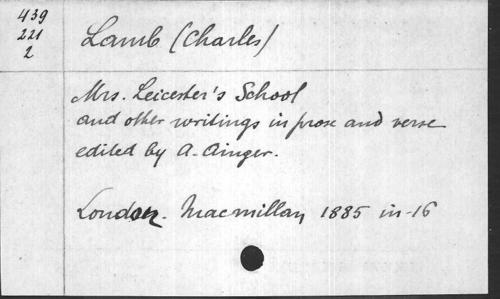 439
221
2
Lamb (Charles)
Mrs. Leicester's School
and other writings in prose and verse
edited by A. Ainger.
London. Macmillan 1885 in-16